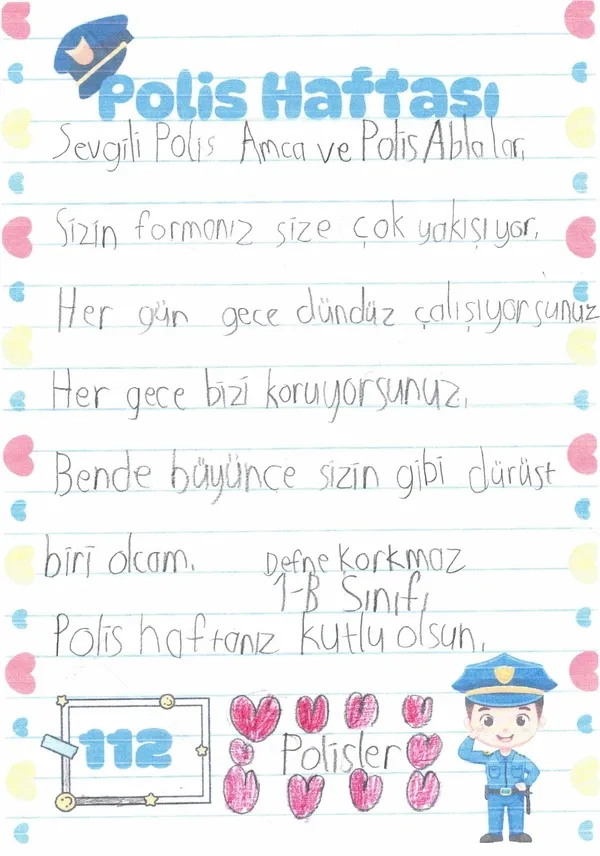 Polis Haftası
Sevgili Polis Amca ve Polis Ablalar,
Sizin formanız size çok yakışıyor.
Her gün gece dündüz çalışıyorsunuz
Her gece bizi koruyorsunuz.
Bende büyünce sizin gibi dürüst
biri olcam.
Defne Korkmaz
1-B Sınıfı
Polis haftanız kutlu olsun.
112
Polisler